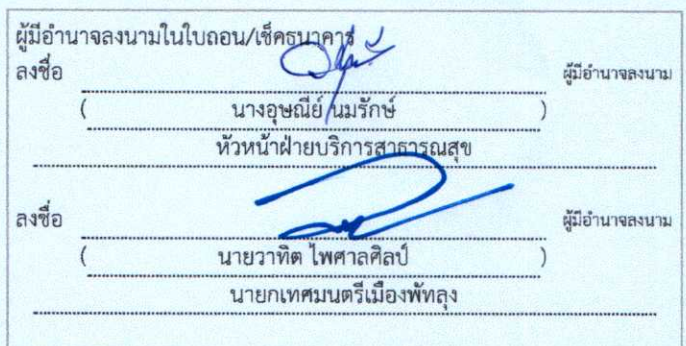 ผู้มีอำนาจลงนามในใบถอน/เช็คธนาคาร
ลงชื่อ ผู้มีอำนาจลงนาม
( นางอุษณีย์ นมรักษ์ )
หัวหน้าฝ่ายบริการสาธารณสุข
ลงชื่อ ผู้มีอำนาจลงนาม
( นายวาทิต ไพศาลศิลป์ )
นายกเทศมนตรีเมืองพัทลุง